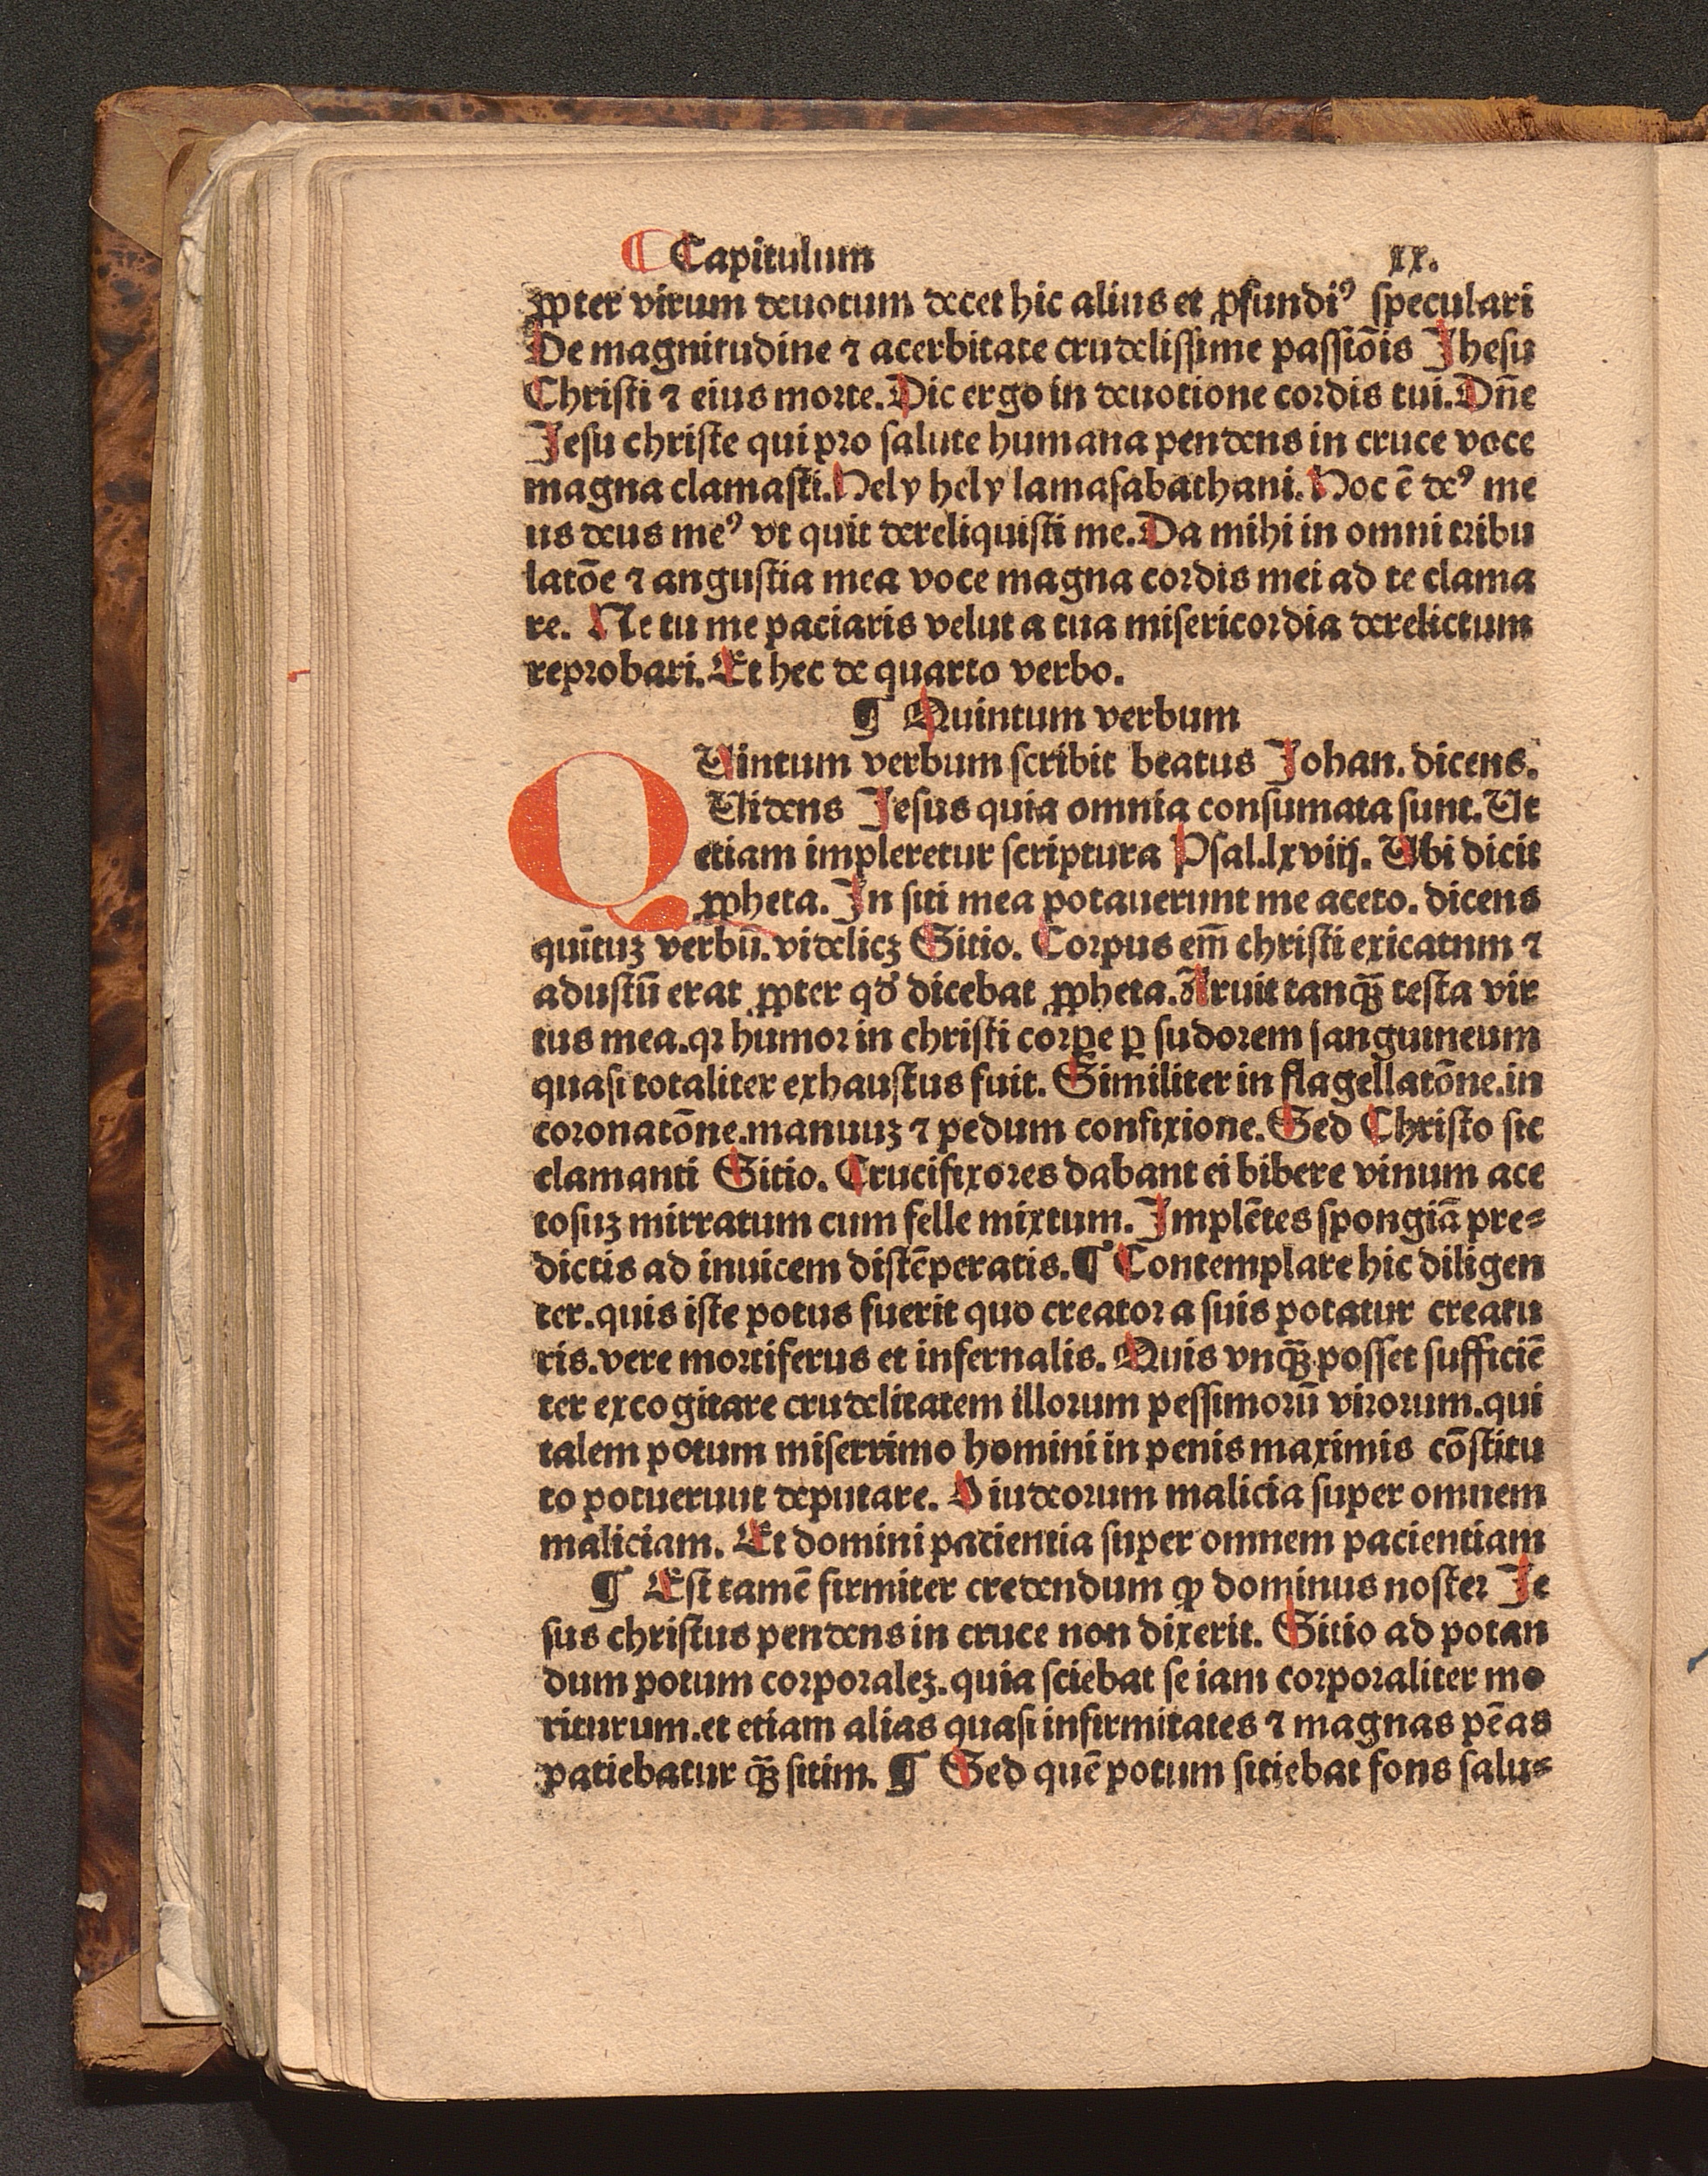 ¶ Capitulum xx.
ꝓpter virum deuotum decet hic alius et ꝓfundiꝰ speculari
De magnitudine ⁊ acerbitate crudelissime passiōis Jhesu
Christi ⁊ eius morte. Dic ergo in deuotione cordis tui. Dn̄e
Jesu christe qui pro salute humana pendens in cruce voce
magna clamasti. Hely hely lamasabathani. Hoc ē deꝰ me
us deus meꝰ vt quit dereliquisti me. Da mihi in omni tribu
latōe ⁊ angustia mea voce magna cordis mei ad te clama
re. Ne tu me paciaris velut a tua misericordia derelictum
reprobari. Et hec de quarto verbo.
¶ Quintum verbum
QUintum verbum scribit beatus Johan. dicens.
Uidens Jesus quia omnia consumata sunt. Ut
etiam impleretur scriptura Psal. lxviij. Ubi dicit
ꝓpheta. In siti mea potauerunt me aceto. dicens
quītuꝫ verbū. videlicꝫ Sitio. Corpus em̄ christi exicatum ⁊
adustū erat ꝓpter qd̓ dicebat ꝓpheta. Aruit tanq̄ꝫ testa vir
tus mea. qꝛ humor in christi corꝑe ꝑ sudorem sanguineum
quasi totaliter exhaustus fuit. Similiter in flagellatōne. in
coronatōne. manuuꝫ ⁊ pedum confixione. Sed Christo sic
clamanti Sitio. Crucifixores dabant ei bibere vinum ace
tosuꝫ mirratum cum felle mixtum. Implētes spongiā pre⸗
dictis ad inuicem distēperatis. ¶ Contemplare hic diligen
ter. quis iste potus fuerit quo creator a suis potatur creatu
ris. vere mortiferus et infernalis. Quis vnq̄ꝫ posset sufficiē
ter excogitare crudelitatem illorum pessimorū virorum. qui
talem potum miserrimo homini in penis maximis cōstitu
to potuerunt deputare. O iudeorum malicia super omnem
maliciam. Et domini patientia super omnem pacientiam
¶ Est tamē firmiter credendum ꝙ dominus noster Je
sus christus pendens in cruce non dixerit. Sitio ad potan
dum potum corporaleꝫ. quia sciebat se iam corporaliter mo
riturum. et etiam alias quasi infirmitates ⁊ magnas pēas
patiebatur q̄ꝫ sitim. ¶ Sed quē potum sitiebat fons salu⸗